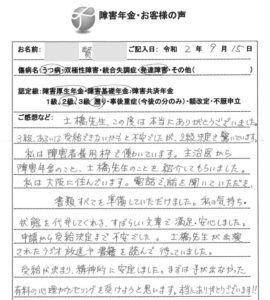 障害年金・お客様の声
お名前: 賢 ご記入日: 令和 2 年 9 月 15 日
傷病名(うつ病・双極性障害・統合失調症・発達障害・その他( )
認定級: 障害厚生年金・障害基礎年金・障害共済年金
1級、2級、3級、遡り・事後重症(今後の分のみ)・額改定・不服申立
ご感想など: 土橋先生、この度は本当にありがとうございました。
3級、あるいは受給できないかもと不安でしたが、2級決定で驚いています。
私は障害者雇用枠で働いています。主治医から
障害年金のこと、土橋先生のことを紹介してもらいました。
私は大阪に住んでいます。電話で話を聞いていただき、
書類すべてを準備していただけました。私の気持ち・
状態を代弁してくれる、すばらしい文章で満足・安心しました。
申請から受給決定まで不安でした。土橋先生が出演
されたラジオ放送や書籍を読んで待っていました。
受給が決まり、精神的に安定しました。まずは手が出なかった
有料の心理カウンセリングを受けようと思います。本当にありがとうございます!!